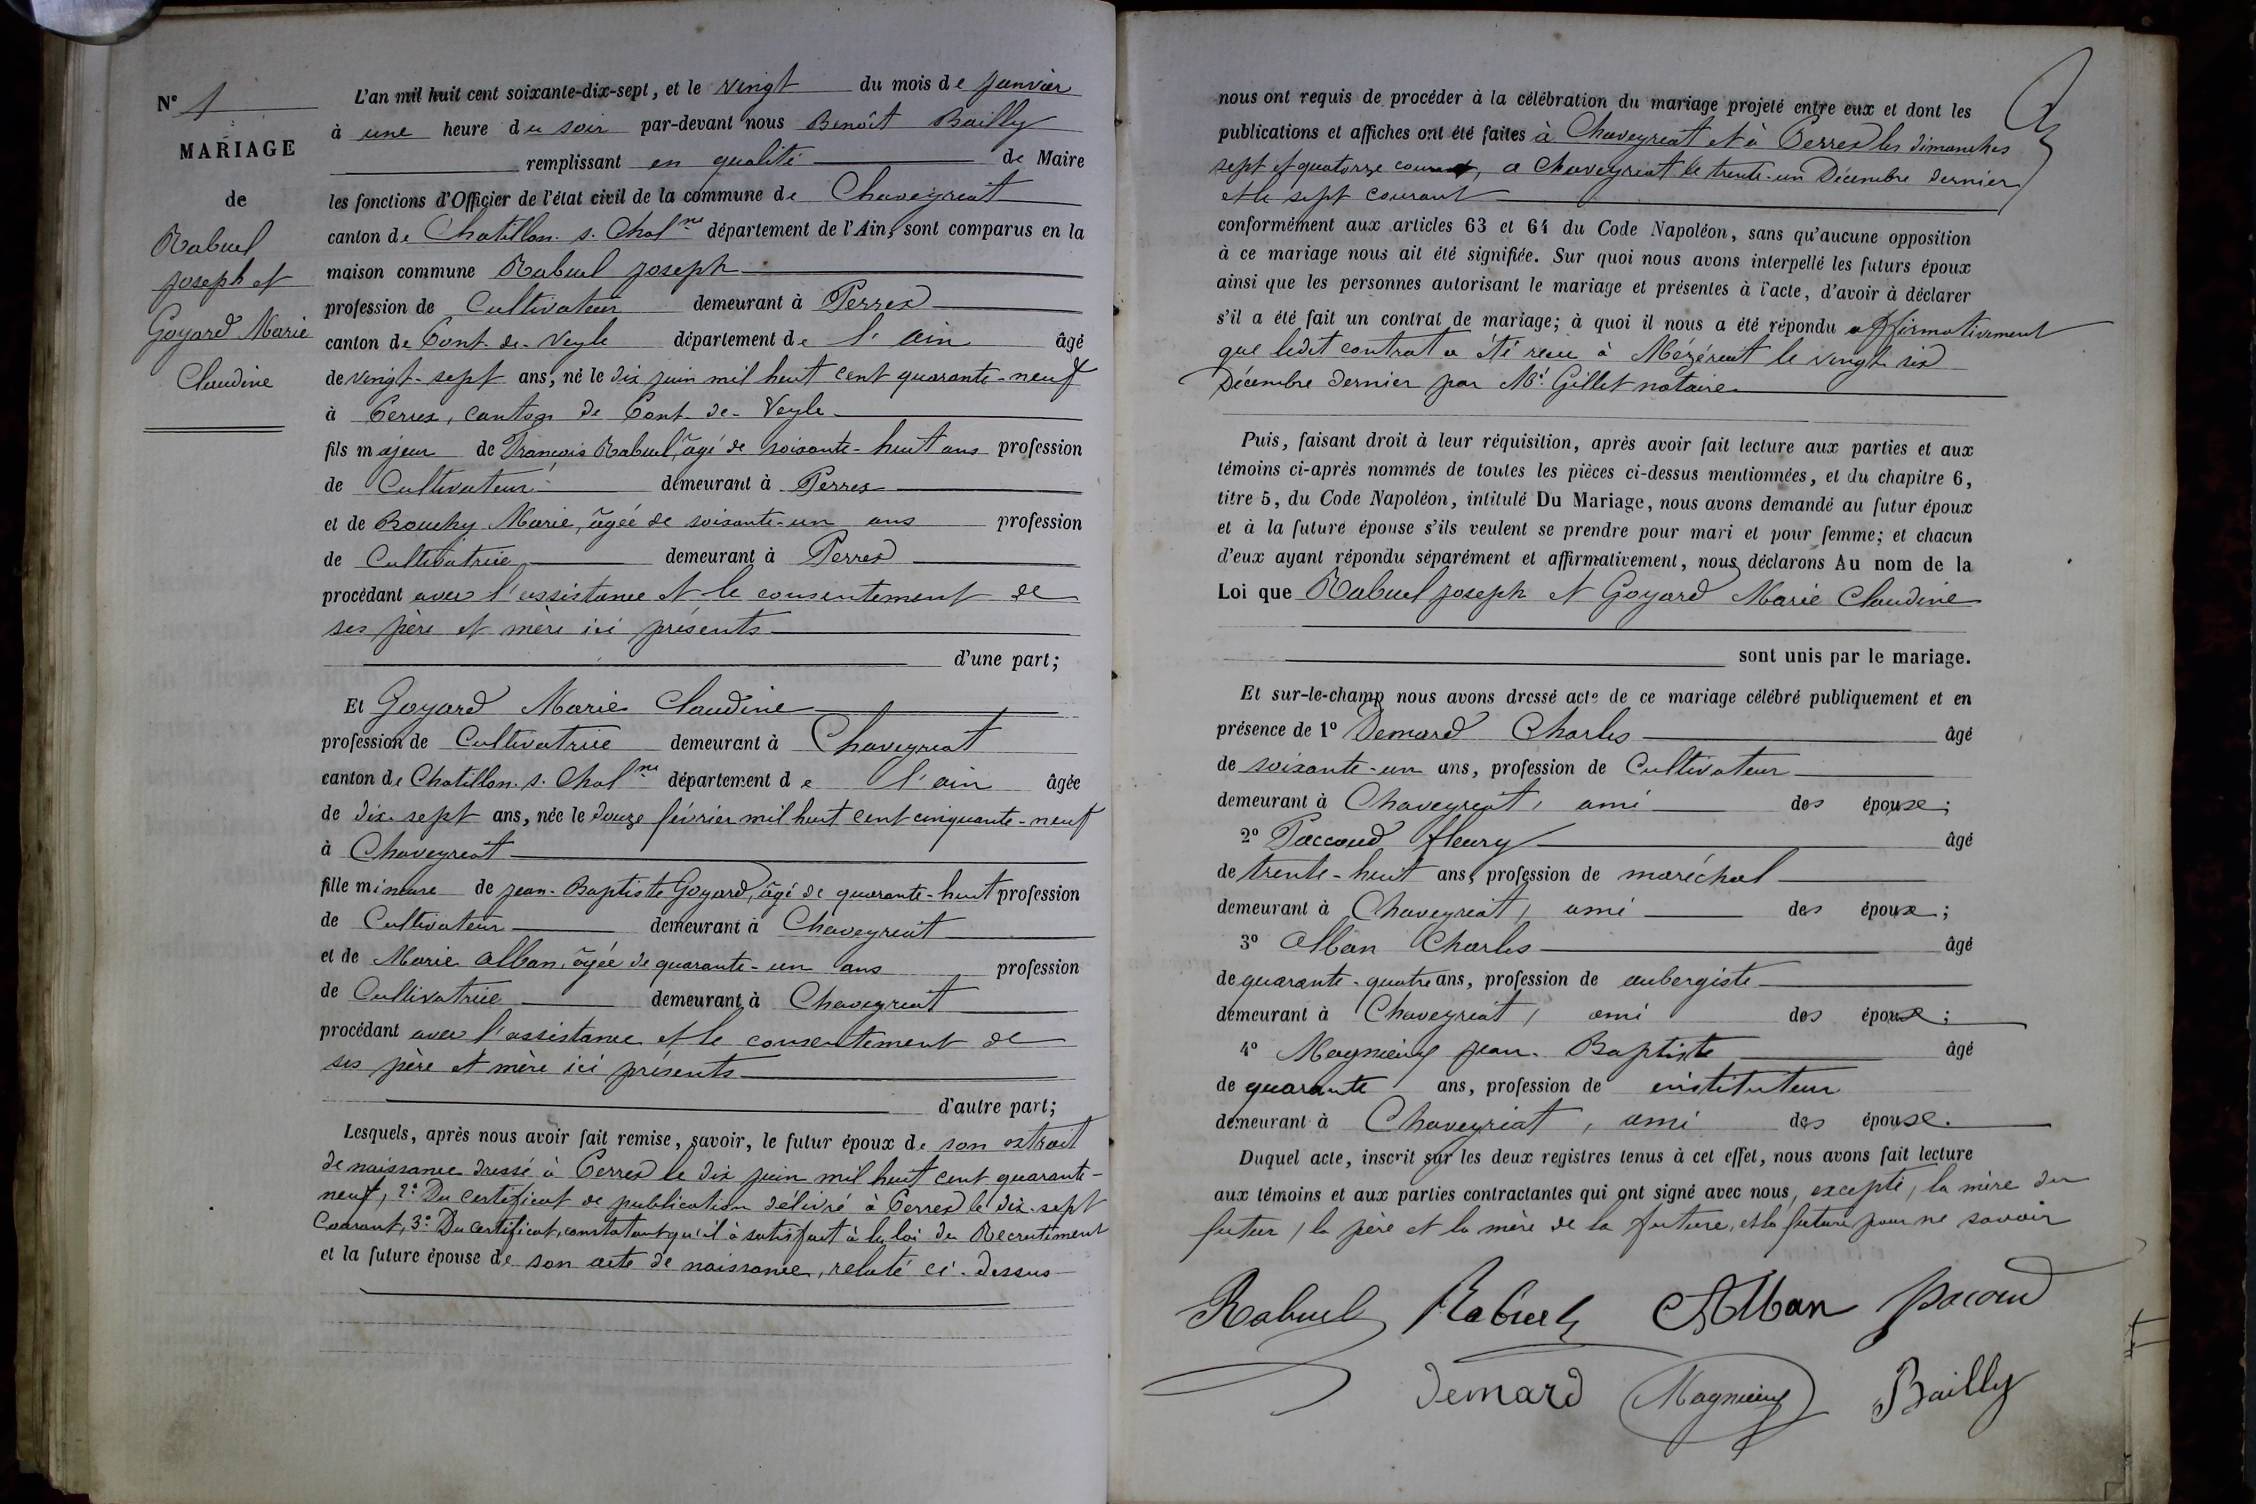 N° 1
MARIAGE
de
Rabuel
Joseph et
Goyard Marie
Claudine
L'an mil huit cent soixante-dix-sept, et le vingt du mois de Janvier
à une heure du soir par-devant nous Benoît Bailly
remplissant en qualité de Maire
les fonctions d'Officier de l'état civil de la commune de Chaveyriat
canton de Chatillon. s. Chal.ne département de l'Ain, sont comparus en la
maison commune Rabuel Joseph
profession de Cultivateur demeurant à Perrex
canton de Pont-de-Veyle département de l'ain âgé
de vingt-sept ans, né le dix juin mil huit cent quarante-neuf
à Perrex, canton de Pont-de-Veyle
fils majeur de François Rabuel âgé de soixante-huit ans profession
de Cultivateur demeurant à Perrex
et de Bouchy Marie, âgée de soixante-un ans profession
de Cultivatrice demeurant à Perrex
procédant avec l'assistance et le consentement de
ses père et mère ici présents
d'une part;
Et Goyard Marie Claudine
profession de Cultivatrice demeurant à Chaveyriat
canton de Chatillon. s. Chal.ne département de l'ain âgée
de dix-sept ans, née le douze février mil huit cent cinquante-neuf
à Chaveyriat
fille mineure de Jean-Baptiste Goyard, âgé de quarante-huit profession
de Cultivateur demeurant à Chaveyriat
et de Marie Alban, âgée de quarante-un ans profession
de Cultivatrice demeurant à Chaveyriat
procédant avec l'assistance et le consentement de
ses père et mère ici présents
d'autre part;
Lesquels, après nous avoir fait remise, savoir, le futur époux de son extrait
de naissance dressé à Perrex le dix juin mil huit cent quarante-
neuf, 2° Du certificat de publication délivré à Perrex le dix-sept
Courant, 3° Du certificat, constatant qu'il à satisfait à la loi du Recrutement
et la future épouse de son acte de naissance, relaté ci-dessus
nous ont requis de procéder à la célébration du mariage projeté entre eux et dont les
publications et affiches ont été faites à Chaveyriat et à Perrex les dimanches
sept et quatorze courant, a Chaveyriat le trente-un Décembre dernier
et le sept courant
conformément aux articles 63 et 64 du Code Napoléon, sans qu'aucune opposition
à ce mariage nous ait été signifiée. Sur quoi nous avons interpellé les futurs époux
ainsi que les personnes autorisant le mariage et présentes à l'acte, d'avoir à déclarer
s'il a été fait un contrat de mariage; à quoi il nous a été répondu affirmativement
que ledit contrat a été reçu à Mézériat le vingt-six
Décembre dernier par Me Gillet notaire
Puis, faisant droit à leur réquisition, après avoir fait lecture aux parties et aux
témoins ci-après nommés de toutes les pièces ci-dessus mentionnées, et du chapitre 6,
titre 5, du Code Napoléon, intitulé Du Mariage, nous avons demandé au futur époux
et à la future épouse s'ils veulent se prendre pour mari et pour femme; et chacun
d'eux ayant répondu séparément et affirmativement, nous déclarons Au nom de la
Loi que Rabuel Joseph et Goyard Marie Claudine
sont unis par le mariage.
Et sur-le-champ nous avons dressé acte de ce mariage célébré publiquement et en
présence de 1° Demard Charles âgé
de soixante-un ans, profession de Cultivateur
demeurant à Chaveyriat, ami des épouse;
2° Paccoud fleury âgé
de trente-huit ans, profession de maréchal
demeurant à Chaveyriat, ami des époux;
3° Alban Charles âgé
de quarante-quatre ans, profession de aubergiste
demeurant à Chaveyriat, ami des épouse;
4° Magnieny Jean-Baptiste âgé
de quarante ans, profession de instituteur
demeurant à Chaveyriat, ami des épouse.
Duquel acte, inscrit sur les deux registres tenus à cet effet, nous avons fait lecture
aux témoins et aux parties contractantes qui ont signé avec nous, excepté, la mère du
futur, le père et la mère de la future, et la future pour ne savoir
Rabuel Rabuel Alban pacoud
Demard Magnieny Bailly